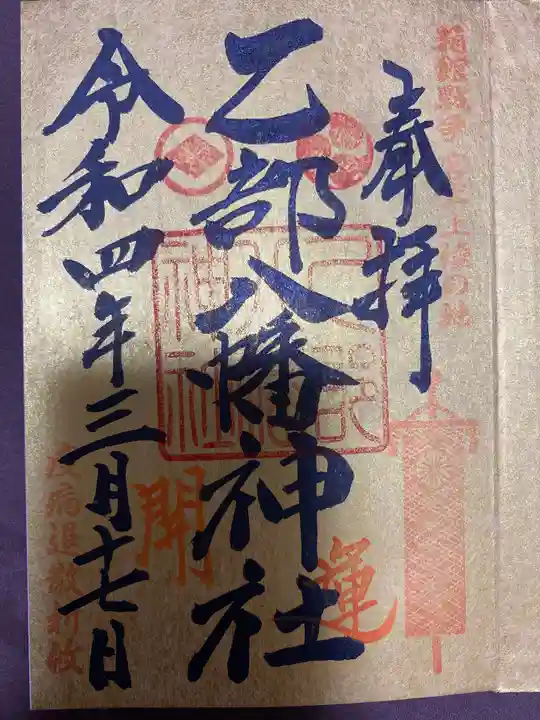 奉拝
乙部八幡神社
令和四年三月十七日
開運
疫病退散祈攸